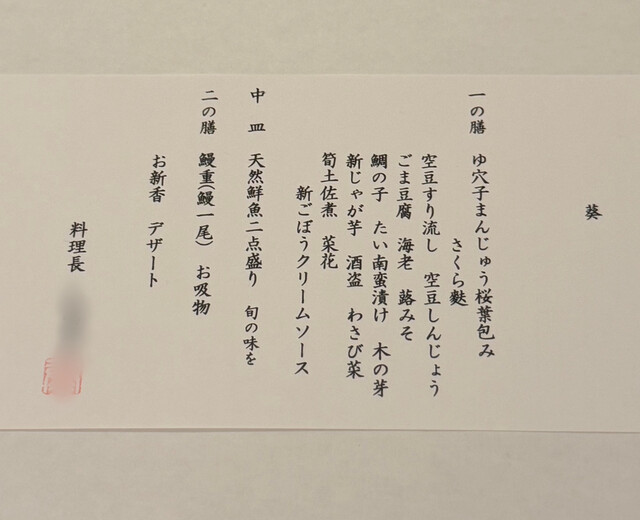 葵
一の膳 ゆ穴子まんじゅう桜葉包み
さくら麩
空豆すり流し 空豆しんじょう
ごま豆腐 海老 蕗みそ
鯛の子 たい南蛮漬け 木の芽
新じゃが芋 酒盗 わさび菜
筍土佐煮 菜花
新ごぼうクリームソース
中皿 天然鮮魚二点盛り 旬の味を
二の膳 鰻重(鰻一尾) お吸物
お新香 デザート
料理長